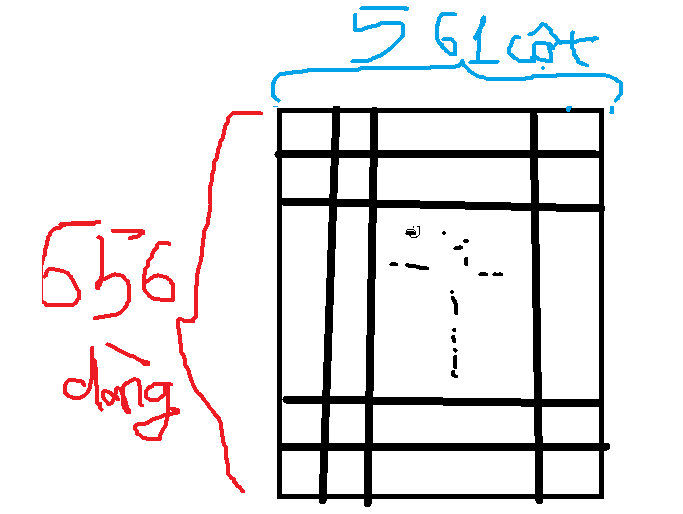 561 cột
656
dòng